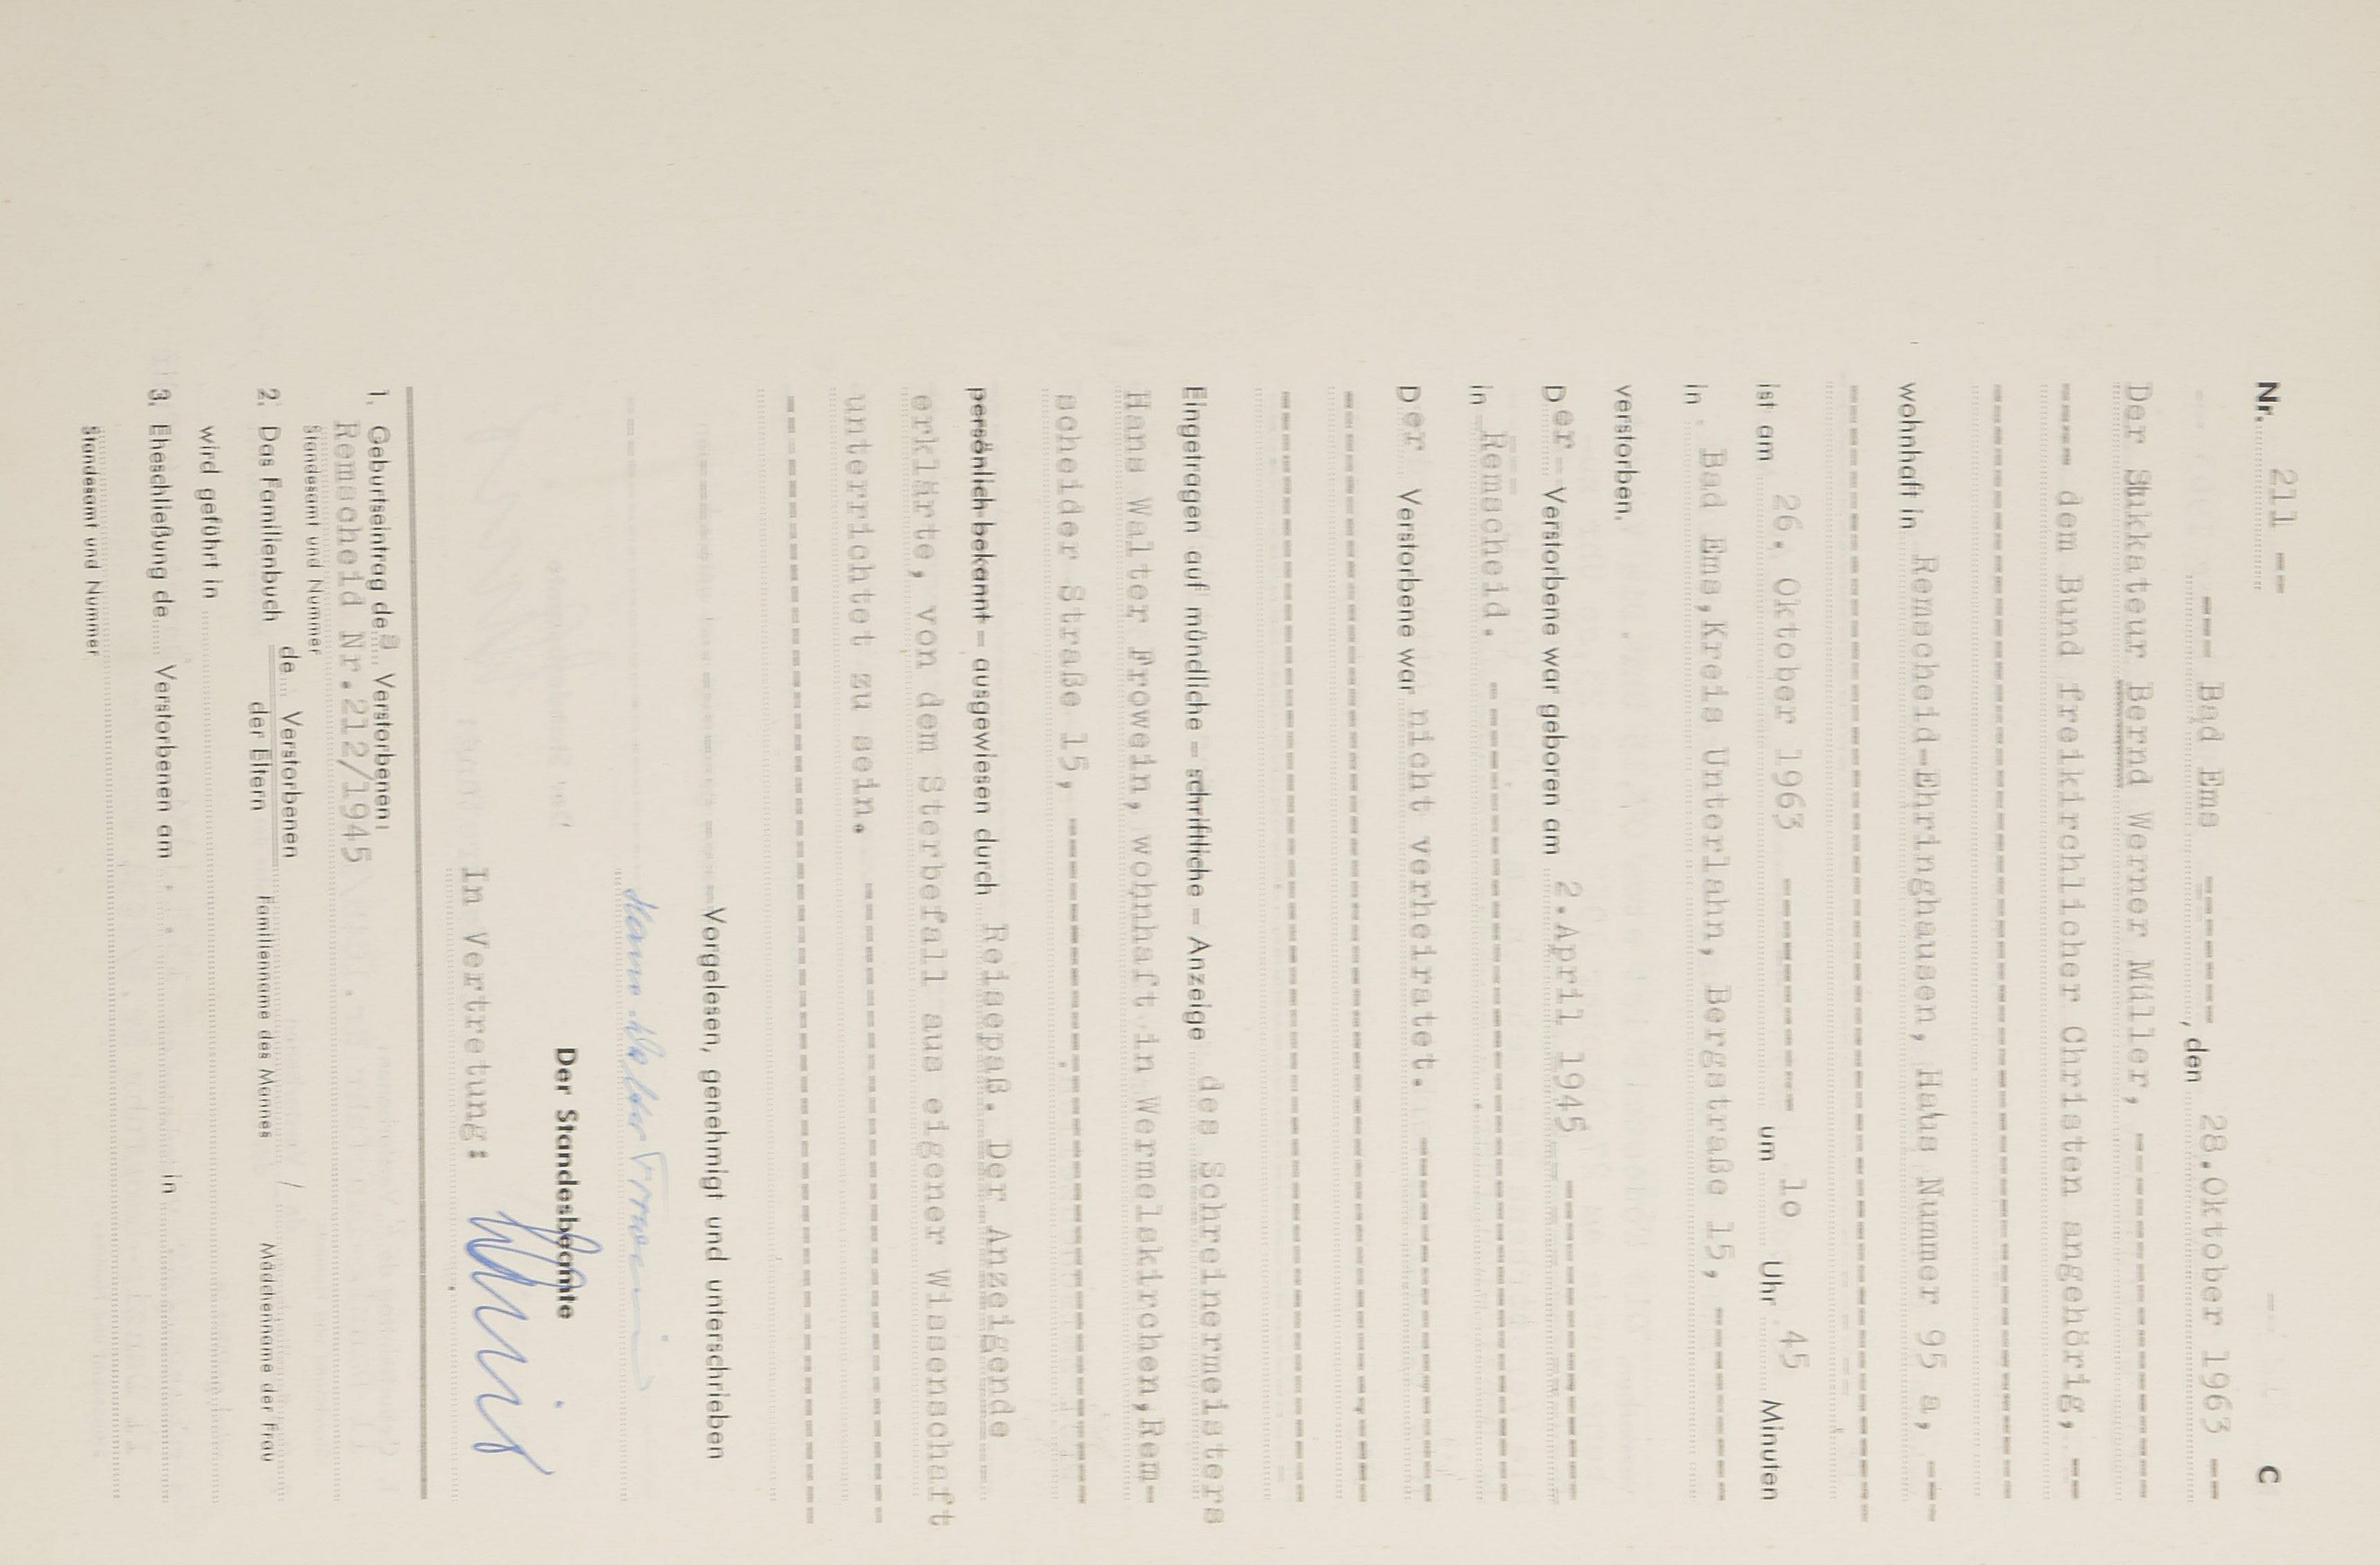 Nr. 211 -- C
--- Bad Ems ------, den 28.Oktober 1963 --
Der Stukkateur Bernd Werner Müller, ----------
---- dem Bund freikirchlicher Christen angehörig, --
wohnhaft in Remscheid-Ehringhausen, Haus Nummer 95 a, ---
ist am 26. Oktober 1963 ---------- um 1o Uhr 45 Minuten
in Bad Ems,Kreis Unterlahn, Bergstraße 15, --------
verstorben.
Der- Verstorbene war geboren am 2.April 1945 ----------
in Remscheid. ----------
Der Verstorbene war nicht verheiratet. ----------
Eingetragen auf mündliche – schriftliche – Anzeige des Schreinermeisters
Hans Walter Frowein, wohnhaft in Wermelskirchen,Rem-
scheider Straße 15, ----------
persönlich bekannt – ausgewiesen durch Reisepaß. Der Anzeigende
erklärte, von dem Sterbefall aus eigener Wissenschaft
unterrichtet zu sein. ----------
Vorgelesen, genehmigt und unterschrieben
Hans Walter Frowein
Der Standesbeamte
In Vertretung:
1. Geburtseintrag des Verstorbenen:
Remscheid Nr.212/1945
Standesamt und Nummer
2. Das Familienbuch de Verstorbenen
der Eltern Familienname des Mannes / Mädchenname der Frau
wird geführt in
3. Eheschließung de Verstorbenen am in
Standesamt und Nummer